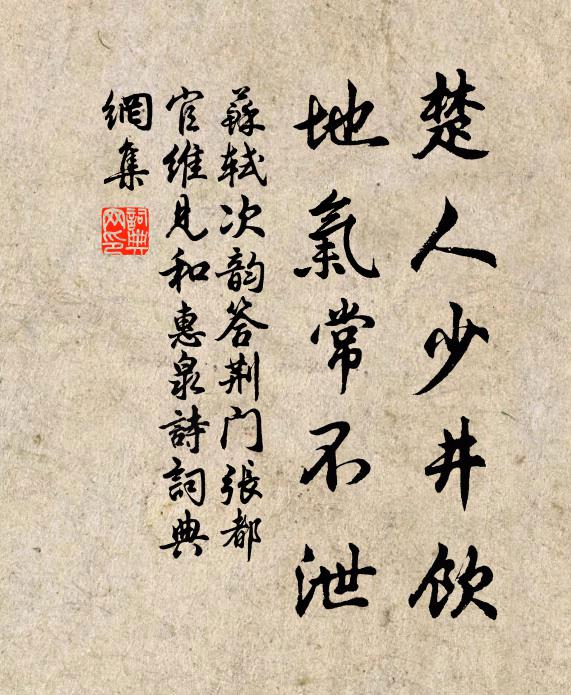 楚人少井飲
地氣常不泄
蘇轼次韵答荆门張都
官維見和惠泉詩詞典
網集
詞典
网印